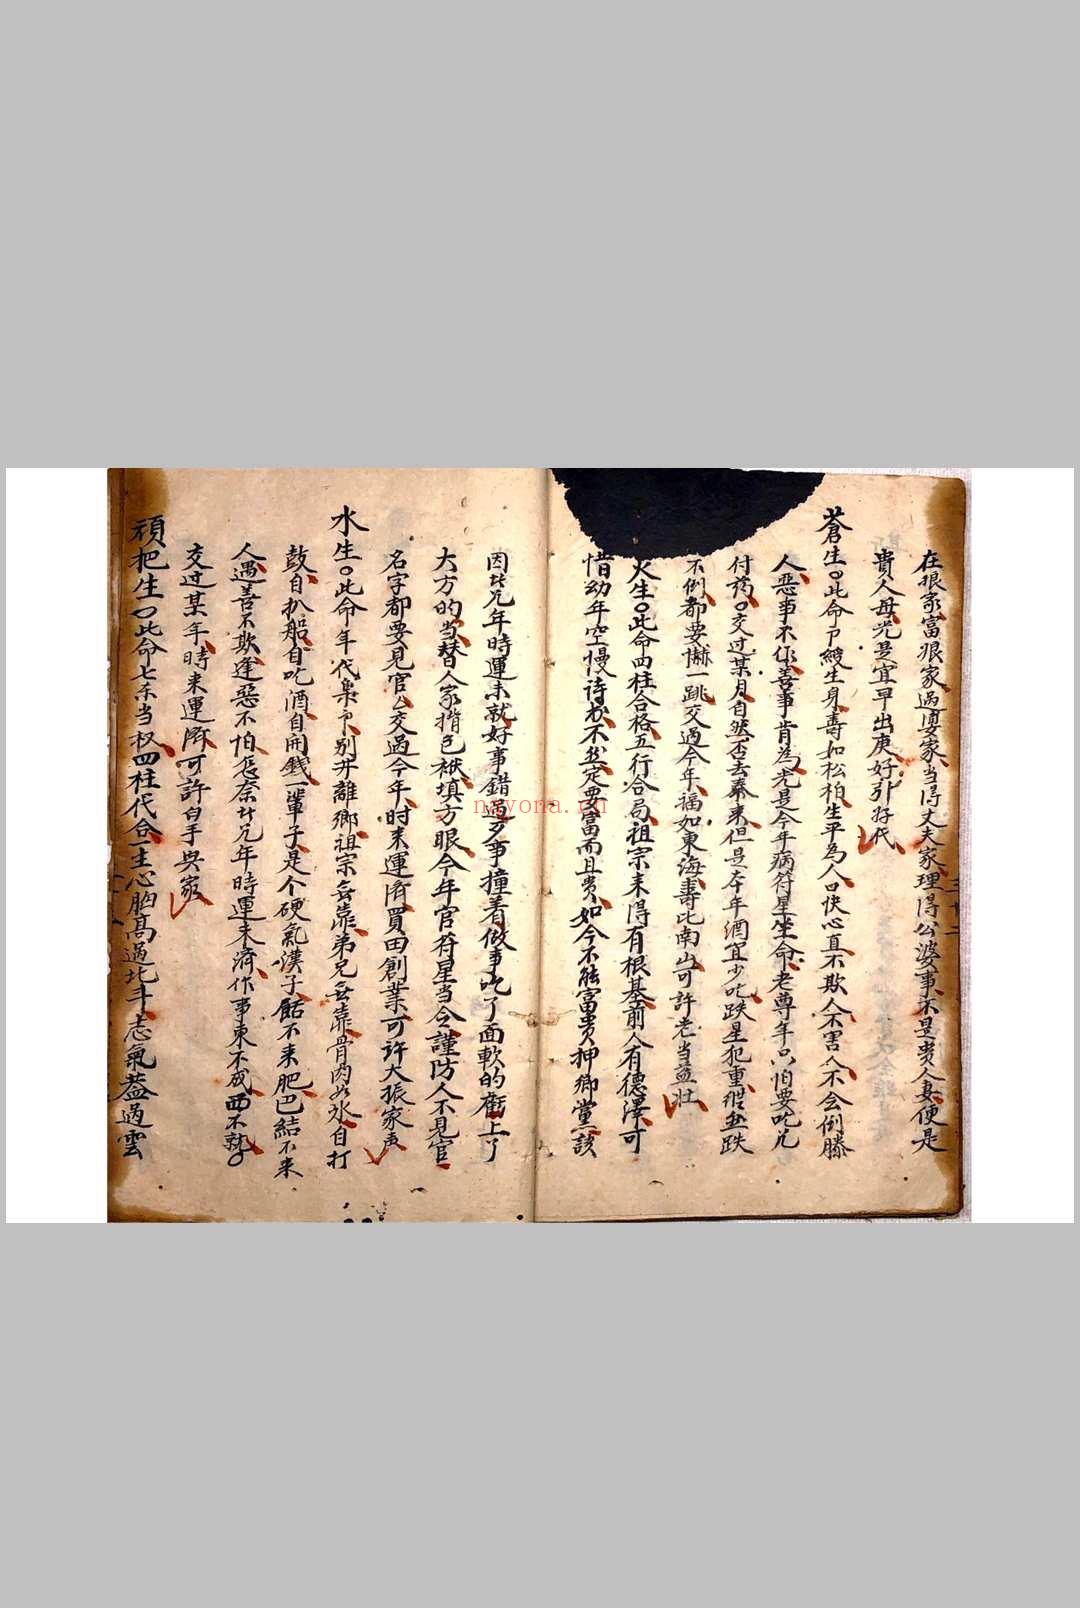 在狠家富狠家過婆家当得丈夫家理得公婆事不是贵人妻便是
貴人母光景宜早出庚好引好代
蒼生此命印綬生身壽如松柏生平為人口快心直不欺人不害人不会倒滕
人惡事不作善事肯為光是今年病符星坐命老尊年只怕要吃几
付药交过某月自然否去泰来但是本年酒宜少吃跌星犯重雖跌
不倒都要嚇一跳交過今年福如東海壽比南山可許老当益壯
火生此命四柱合格五行合局祖宗来得有根基前人有德澤可
惜幼年空慢诗不然定要富而且贵如今不能富贵押鄉黨談
因此几年時運未就好事錯過歹事撞着做事吃了面軟的虧上了
大方的当替人家揹包袱填方眼今年官符星当令謹防人不見官
名字都要見官交過今年时来運濟買田創業可许大振家声
水生此命年代梟印别井離鄉祖宗無靠弟兄無靠骨肉如氷自打
鼓自扒船自吃酒自開錢一輩子是个硬氣漢子餂不来肥巴結不来
人遇善不欺逢惡不怕怎奈廿几年時運未濟作事東不成西不就
交过某年時来運濟可許白手興家
此命七杀当权四柱代合一生心胸高過北斗志氣蓋過雲
nayona.cn